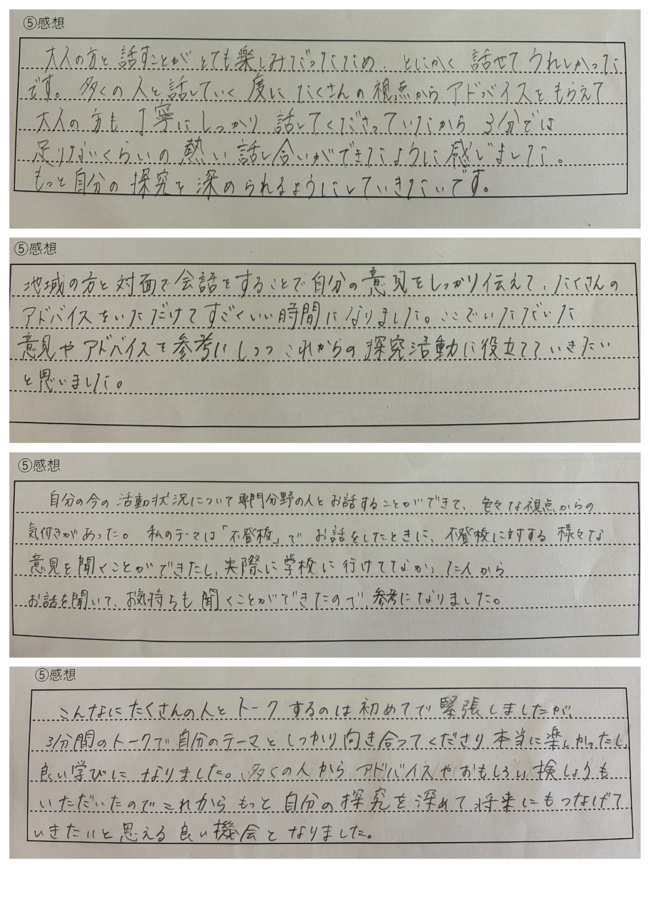 ⑤感想
大人の方と話すことがとても楽しみだったため、とにかく話せてうれしかった
です。多くの人と話していく度にたくさんの視点からアドバイスをもらえて
大人の方も丁寧にしっかり話してくださっていたから3分では
足りないくらいの熱い話し合いができたように感じました。
もっと自分の探究を深められるようにしていきたいです。
⑤感想
地域の方と対面で会話をすることで自分の意見をしっかり伝えて、たくさんの
アドバイスをいただけてすごくいい時間になりました。ここでいただいた
意見やアドバイスを参考にしつつこれからの探究活動に役立てていきたい
と思いました。
⑤感想
自分の今の活動状況について専門分野の人とお話することができて、色々な視点からの
気付きがあった。私のテーマは「不登校」でお話をしたときに、不登校に対する様々な
意見を聞くことができたし、実際に学校に行けてなかった人から
お話を聞いて、お気持ちも聞くことができたので、参考になりました。
⑤感想
こんなにたくさんの人とトークするのは初めてで緊張しましたが、
3分間のトークで自分のテーマとしっかり向き合ってくださり本当に楽しかったし、
良い学びになりました。多くの人からアドバイスやおもしろい検しょうも
いただいたのでこれからもっと自分の探究を深めて将来にもつなげて
いきたいと思える良い機会となりました。